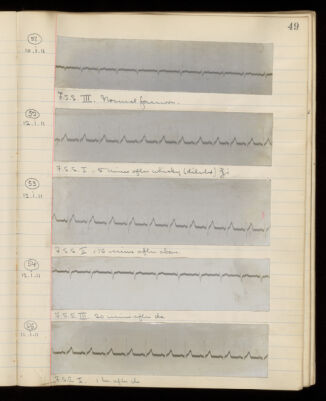 49
51
12.1.11
F.S.S. III. Normal
52
12.1.11
F.S.S. I. 5 mins after whisky (diluted) ℥i
53
12.1.11
F.S.S. II. 15 mins after above
54
12.1.11
F.S.S. III. 20 mins after do
55
12.1.11
F.S.S. I. 1 hr after do